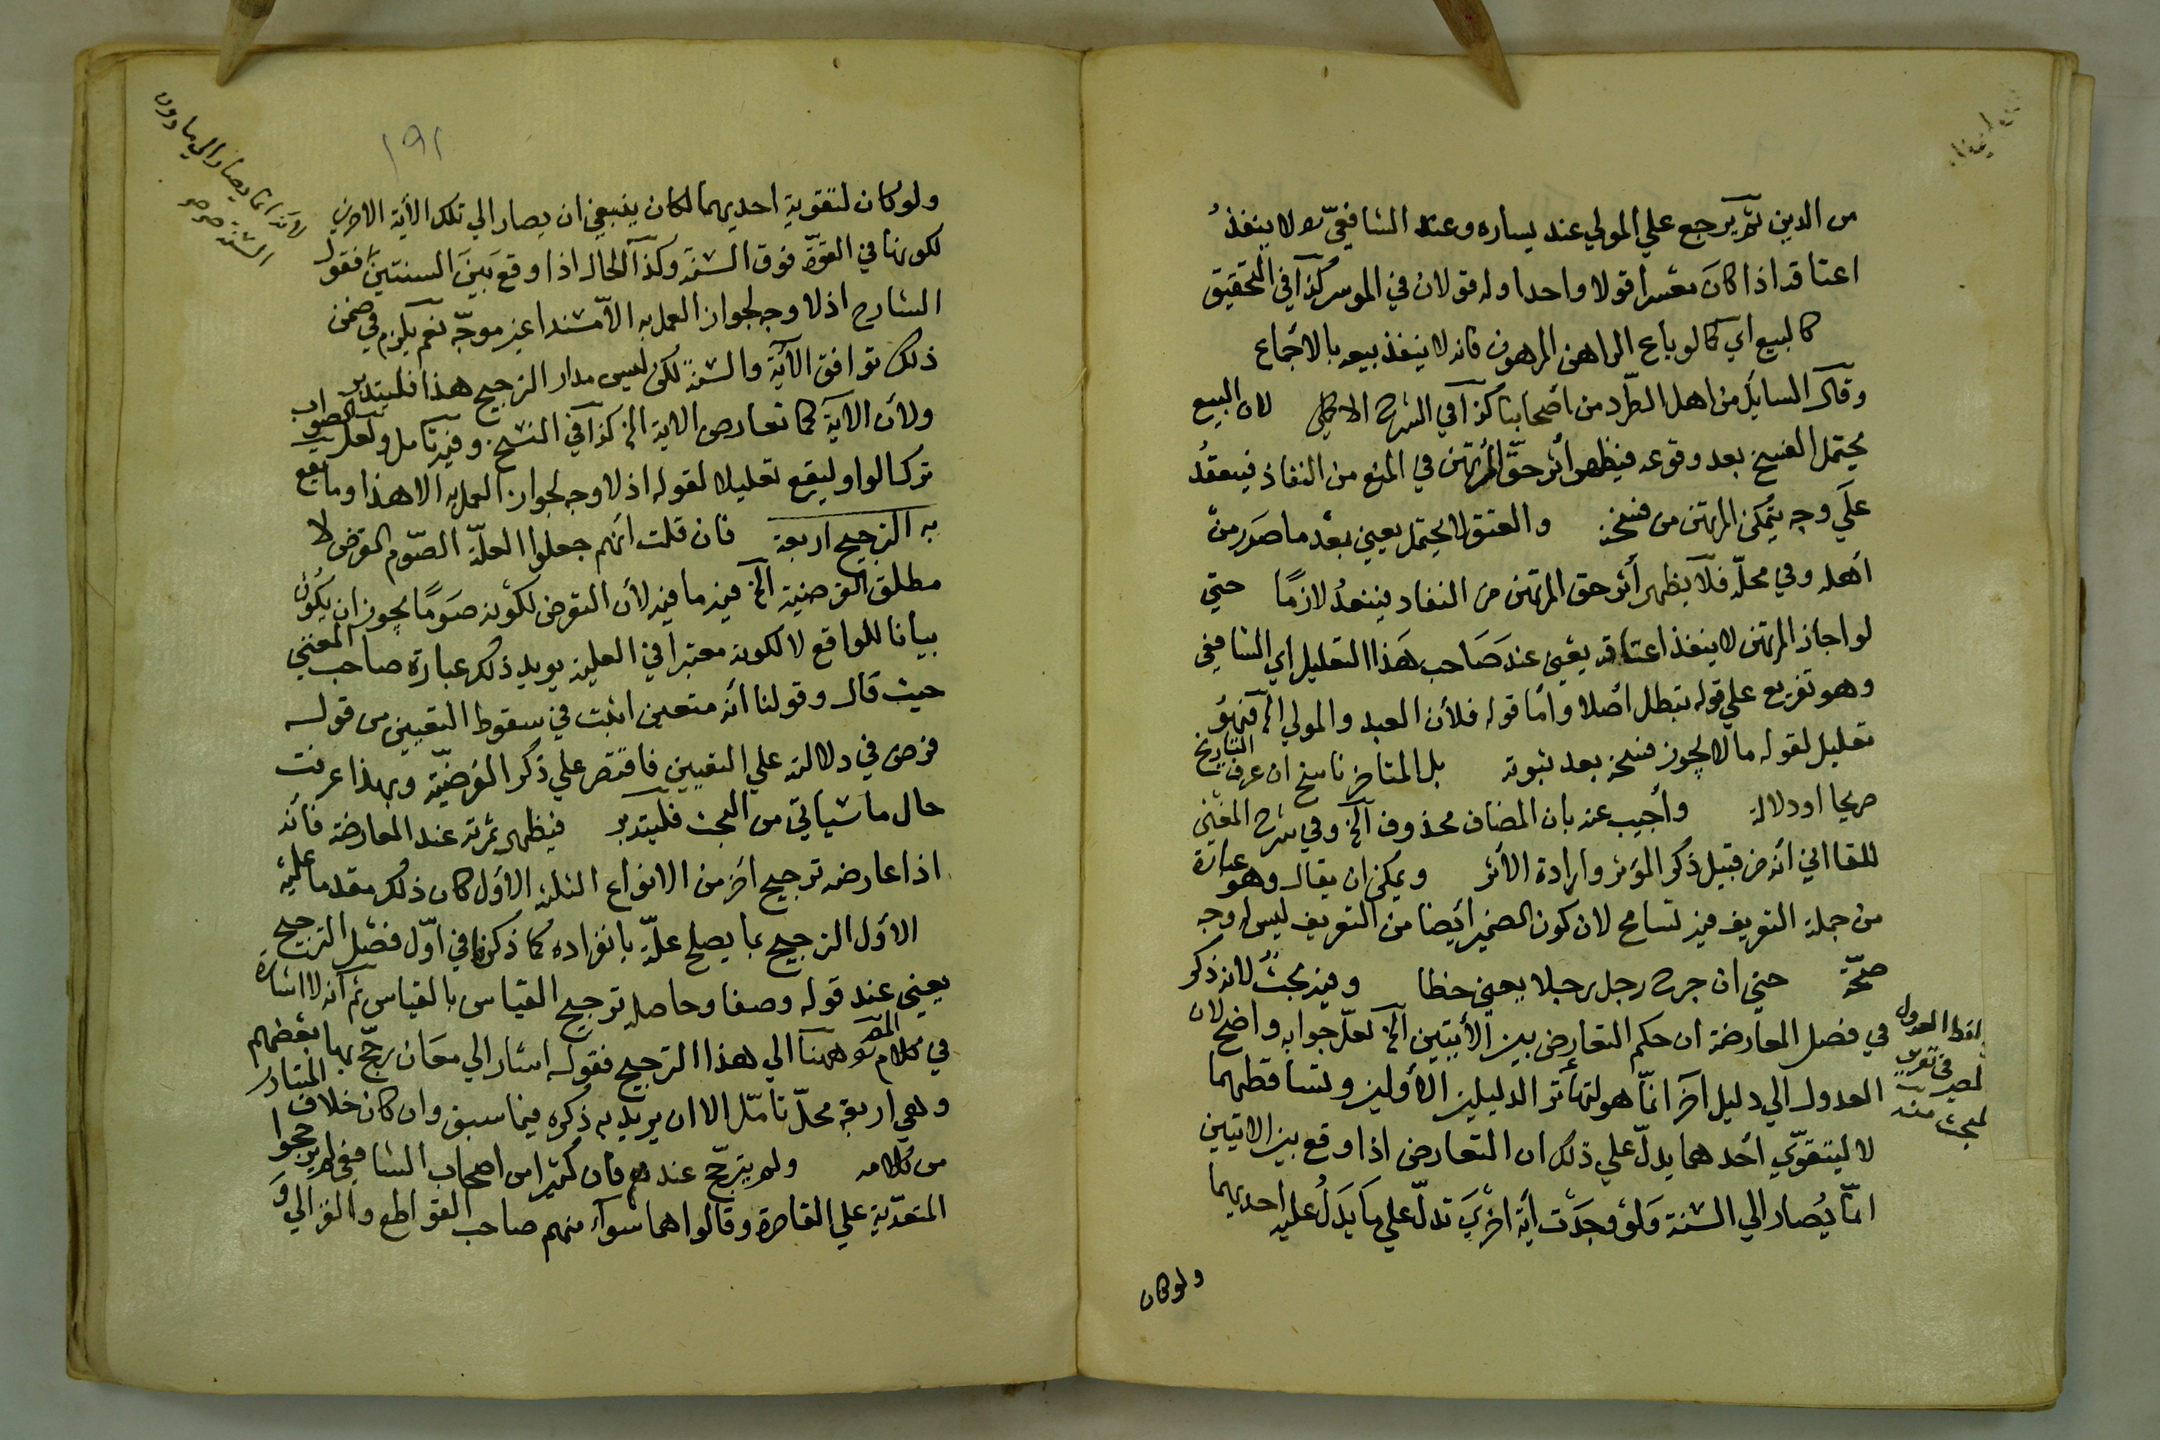 من الدين ثم يرجع علي المولي عند يساره وعند الشافعي لا ينفذ
اعتاقه اذا كان معسرا قولا واحدا وله قولان في الموسر كذا في التحقيق
كالبيع اي كما لو باع الراهن المرهون فانه لا ينفذ بيعه بالاجماع
وقال السايل من اهل الطرد من اصحابنا كذا في الشرح الاكملي لان البيع
يحتمل الفسخ بعد وقوعه فيظهر اثر حق المرتهن في المنع من النفاذ فينعقد
علي وجه يتمكن المرتهن من فسخه والعتق لا يحتمل يعني بعد ما صدر من
اهله وفي محله فلا يظهر اثر حق المرتهن من النفاد فينفذ لازما حتي
لو اجاز المرتهن لا ينفذ اعتاقه يعني عند صاحب هذا التعليل اي الشافعي
وهو تفريع علي قوله تبطل اصلا واما قوله فلان العبد والمولي الخ فهو
تعليل لقوله ما لا يجوز فسخه بعد ثبوته بل المتاخر ناسخ ان عرف التاريخ
صريحا او دلالة واجيب عنه بان المضاف محذوف الخ وفي شرح المغني
للقاانی انه من قبيل ذكر المؤثر وارادة الاثر ويمكن ان يقال وهو عبارة
من جملة التعريف فيه تسامح لان كون الضمير ايضا من التعريف ليس له وجه
صحة حتي ان جرح رجل رجلا يعني خطا وفيه بحث لانه ذكر
في فصل المعارضة ان حكم التعارض بين الآيتين الخ لعل جوابه واضح لان
العدول الي دليل آخر انما هو لتهاتر الدليلين الاولين وتساقطهما
لا ليتقوي احدهما يدل علي ذلك ان التعارض اذا وقع بين الايتين
انما يصار الي السنة ولو وجدت آية اخري تدل علي ما يدل عليه احديهما
ولو كان
١٩١
ولو كان لتقوية احديهما لكان ينبغي ان يصار الي تلك الآية الاخري
لكونها في القوة فوق السنة وكذا الحال اذا وقع بين السنتين فقول
الشارح اذ لا وجه لجواز العمل به الا مسندا غير موجه نعم يلزم في ضمن
ذلك توافق الآية والسنة لكن ليس مدار الترجيح هذا فليتدبر
ولان الآية كما تعارض الاية الخ كذا في النسخ وفيه تامل ولعل الصواب
ترك الواو ليقع تعليلا لقوله اذ لا وجه لجواز العمل به الا هذا وما يقع
به الترجيح اربعة فان قلت انهم جعلوا العلة الصوم الفرض لا
مطلق الفرضية الخ فيه ما فيه لان التعرض لكونه صوما يجوز ان يكون
بيانا للواقع لا لكونه معتبرا في العلية يويد ذلك عبارة صاحب المغني
حيث قال وقولنا انه متعين اثبت في سقوط التعيين من قوله
فرض في دلالته علي التعيين فاقتصر علي ذكر الفرضية وبهذا عرفت
حال ما سياتي من البحث فليتدبر فيظهر ثمرته عند المعارضة فانه
اذا عارضه ترجيح آخر من الانواع الثلثة الاول كان ذلك مقدما عليه
الاول الترجيح بما يصلح علة بانفراده كما ذكرنا في اول فصل الترجيح
يعني عند قوله وصفا وحاصله ترجيح القياس بالقياس ثم انه لا اشارة
في كلام المص ههنا الي هذا الترجيح فقوله اشار الي معان رجح بها بعضهم
وهي اربعة محل تامل الا ان يريد به ذكره فيما سبق وان كان خلاف المتبادر
من كلامه ولم يترجح عندهم فان كثيرا من اصحاب الشافعي لم يرجحوا
المتعدية علي القاصرة وقالوا هما سواء منهم صاحب القواطع والغزالي و